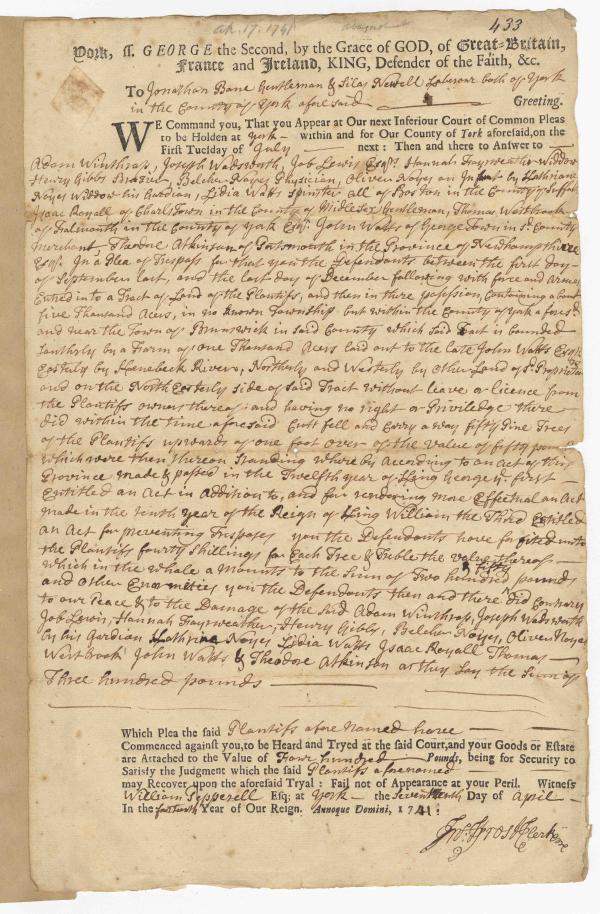 Ap. 17. 1741
433
York, ss. GEORGE the Second, by the Grace of GOD, of Great-Britain,
France and Ireland, KING, Defender of the Faith, &c.
To Jonathan Bane Gentleman & Silas Newell Labourer both of York
in the County of York afore said Greeting.
WE Command you, That you Appear at Our next Inferiour Court of Common Pleas
to be Holden at York within and for Our County of York aforesaid, on the
First Tuesday of July next: Then and there to Answer to
Adam Winthrop, Joseph Wadsworth, Job Lewis Esqrs. Hannah Fayweather Widdow
Henry Gibbs Brazier, Belcher Noyes Physician, Oliver Noyes an Infant by Kathrine
Noyes Widdow his Gardian, Lidia Watts Spinster all of Boston in the County of Suffolk
Isaac Royall of Charls Town in the County of Midlesex Gentleman, Thomas Westbrook
of Falmouth in the County of York Esqr. John Watts of George Town in sd. County
Merchant Theodore Atkinson of Portsmouth in the Province of Newhampshiere
Esqr. In a Plea of Trespass for that you the Defendants between the first day
of September last, and the last day of December following with force and Armes
Entred into a Tract of Land of the Plantifs, and then in there possession Containing about
five Thousand Acers, in no known Township but within the County of York aforesd.
and near the Town of Brunswick in said County which said Tract is bounded
Southerly by a Farm of one Thousand Acers laid out to the late John Watts Esqr.
Easterly by Kenebeck River, Northerly and Westerly by other Land of sd. Proprietors
and on the North Easterly side of said Tract without leave or licence from
the Plantifs owners thereof and having no right or Priviledge there
did within the time afore said Cutt fell and Carry away fifty Pine Trees
of the Plantifs upwards of one foot over of the value of fifty pounds
which were then thereon standing where by According to an Act of this
Province made & passed in the Twelfth year of King George ye. first
Entitled an Act in Addition to, and for rendering more Effectual an Act
made in the tenth year of the Reign of King William the Third Entitled
an Act for preventing Trespases you the Defendants have forfited unto
the Plantifs fourty Shillings for Each Tree & Treble the value thereof
which in the whole a Mounts to the Sum of Two hundred & fifty pounds
and other Enormities you the Defendants then and there did Contrary
to our Peace & to the Damage of the said Adam Winthrop, Joseph Wadsworth
Job Lewis, Hannah Fayweather, Henry Gibbs, Belcher Noyes, Oliver Noyes
by his Gardian Kathrine Noyes Lidia Watts Isaac Royall Thomas
Westbrook John Watts & Theodore Atkinson as they Say the Sum of
Three hundred pounds
Which Plea the said Plantifs afore Named have
Commenced against you, to be Heard and Tryed at the said Court, and your Goods or Estate
are Attached to the Value of Four hundred Pounds, being for Security to
Satisfy the Judgment which the said Plantifs aforenamed
may Recover upon the aforesaid Tryal: Fail not of Appearance at your Peril. Witness
William Pepperell Esq; at York the Seventeenth Day of April
In the fourteenth Year of Our Reign. Annoque Domini, 1741:
Jno. Frost Clerk